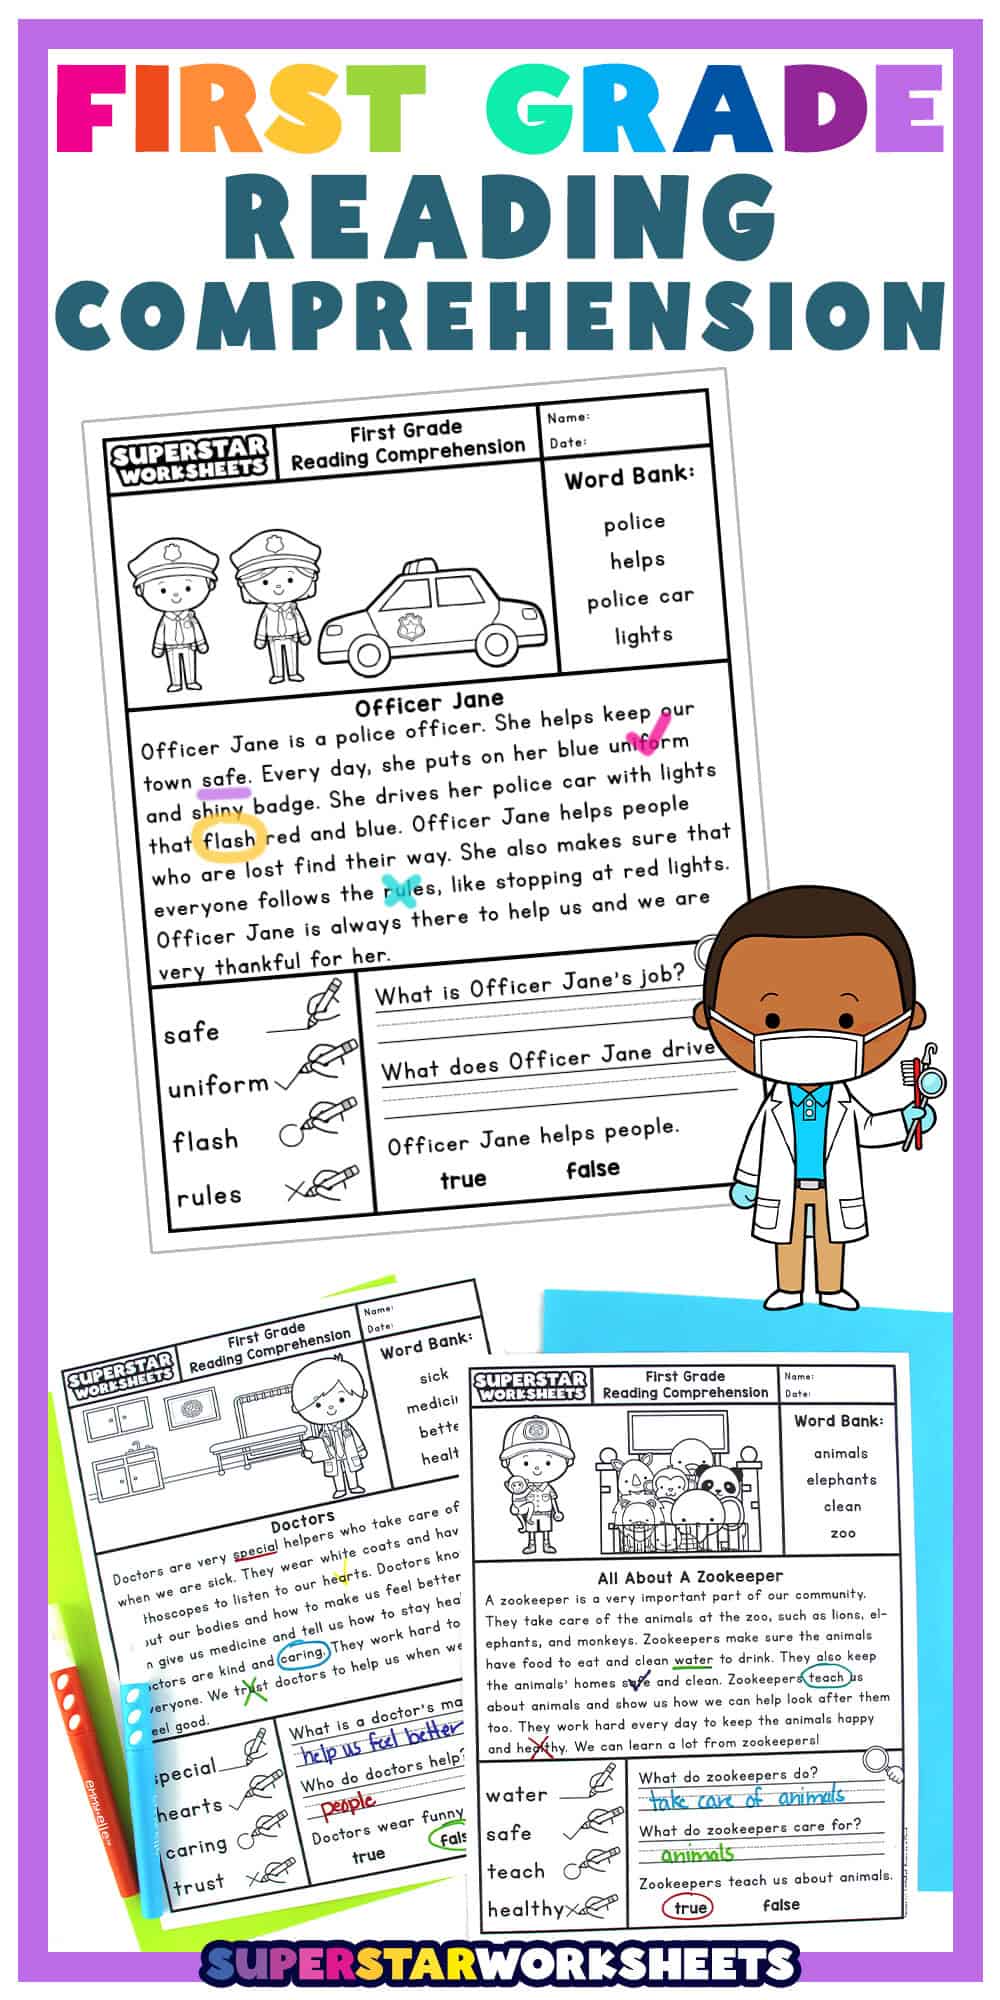 FIRST GRADE
READING
COMPREHENSION
SUPERSTAR
WORKSHEETS
First Grade
Reading Comprehension
Name:
Date:
Word Bank:
police
helps
police car
lights
Officer Jane
Officer Jane is a police officer. She helps keep our
town safe. Every day, she puts on her blue uniform
and shiny badge. She drives her police car with lights
that flash red and blue. Officer Jane helps people
who are lost find their way. She also makes sure that
everyone follows the rules, like stopping at red lights.
Officer Jane is always there to help us and we are
very thankful for her.
safe
uniform
flash
rules
What is Officer Jane's job?
What does Officer Jane drive
Officer Jane helps people.
true false
SUPERSTAR
WORKSHEETS
First Grade
Reading Comprehension
Name:
Date:
Word Bank:
sick
medici
bette
healt
Doctors
Doctors are very special helpers who take care of
when we are sick. They wear white coats and hav
thoscopes to listen to our hearts. Doctors kno
out our bodies and how to make us feel better
n give us medicine and tell us how to stay hea
ctors are kind and caring. They work hard to
veryone. We trust doctors to help us when we
eel good.
special
hearts
caring
trust
What is a doctor's ma
help us feel better
Who do doctors help?
people
Doctors wear funny
true fals
SUPERSTAR
WORKSHEETS
First Grade
Reading Comprehension
Name:
Date:
Word Bank:
animals
elephants
clean
zoo
All About A Zookeeper
A zookeeper is a very important part of our community.
They take care of the animals at the zoo, such as lions, el-
ephants, and monkeys. Zookeepers make sure the animals
have food to eat and clean water to drink. They also keep
the animals' homes safe and clean. Zookeepers teach us
about animals and show us how we can help look after them
too. They work hard every day to keep the animals happy
and healthy. We can learn a lot from zookeepers!
water
safe
teach
healthy
What do zookeepers do?
take care of animals
What do zookeepers care for?
animals
Zookeepers teach us about animals.
true false
SUPERSTARWORKSHEETS